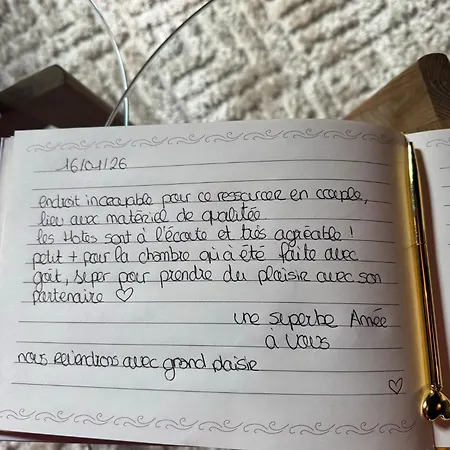 16/01/26
endroit incroyable pour ce ressourcer en couple,
lieu avec matériel de qualitée
les Hotes sont à l'écoute et très agréable !
petit + pour la chambre qui a été faite avec
goût, super pour prendre du plaisir avec son
partenaire ♡
une superbe Année
à vous
nous reviendrons avec grand plaisir
♡